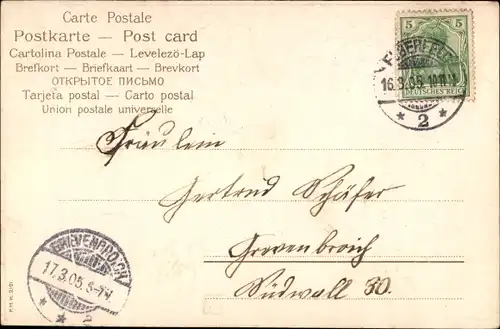 Carte Postale
Postkarte — Post card
Cartolina Postale — Levelező-Lap
Brefkort — Briefkaart — Brevkort
ОТКРЫТОЕ ПИСЬМО
Tarjeta postal — Carto postal
Union postale universelle
5 5
DEUTSCHES REICH
16.3.05
* 2 *
Fräulein
Gertrud Schäfer
Grevenbroich
Südwall 30.
GREVENBROICH
17.3.05.6-7V.
* 2